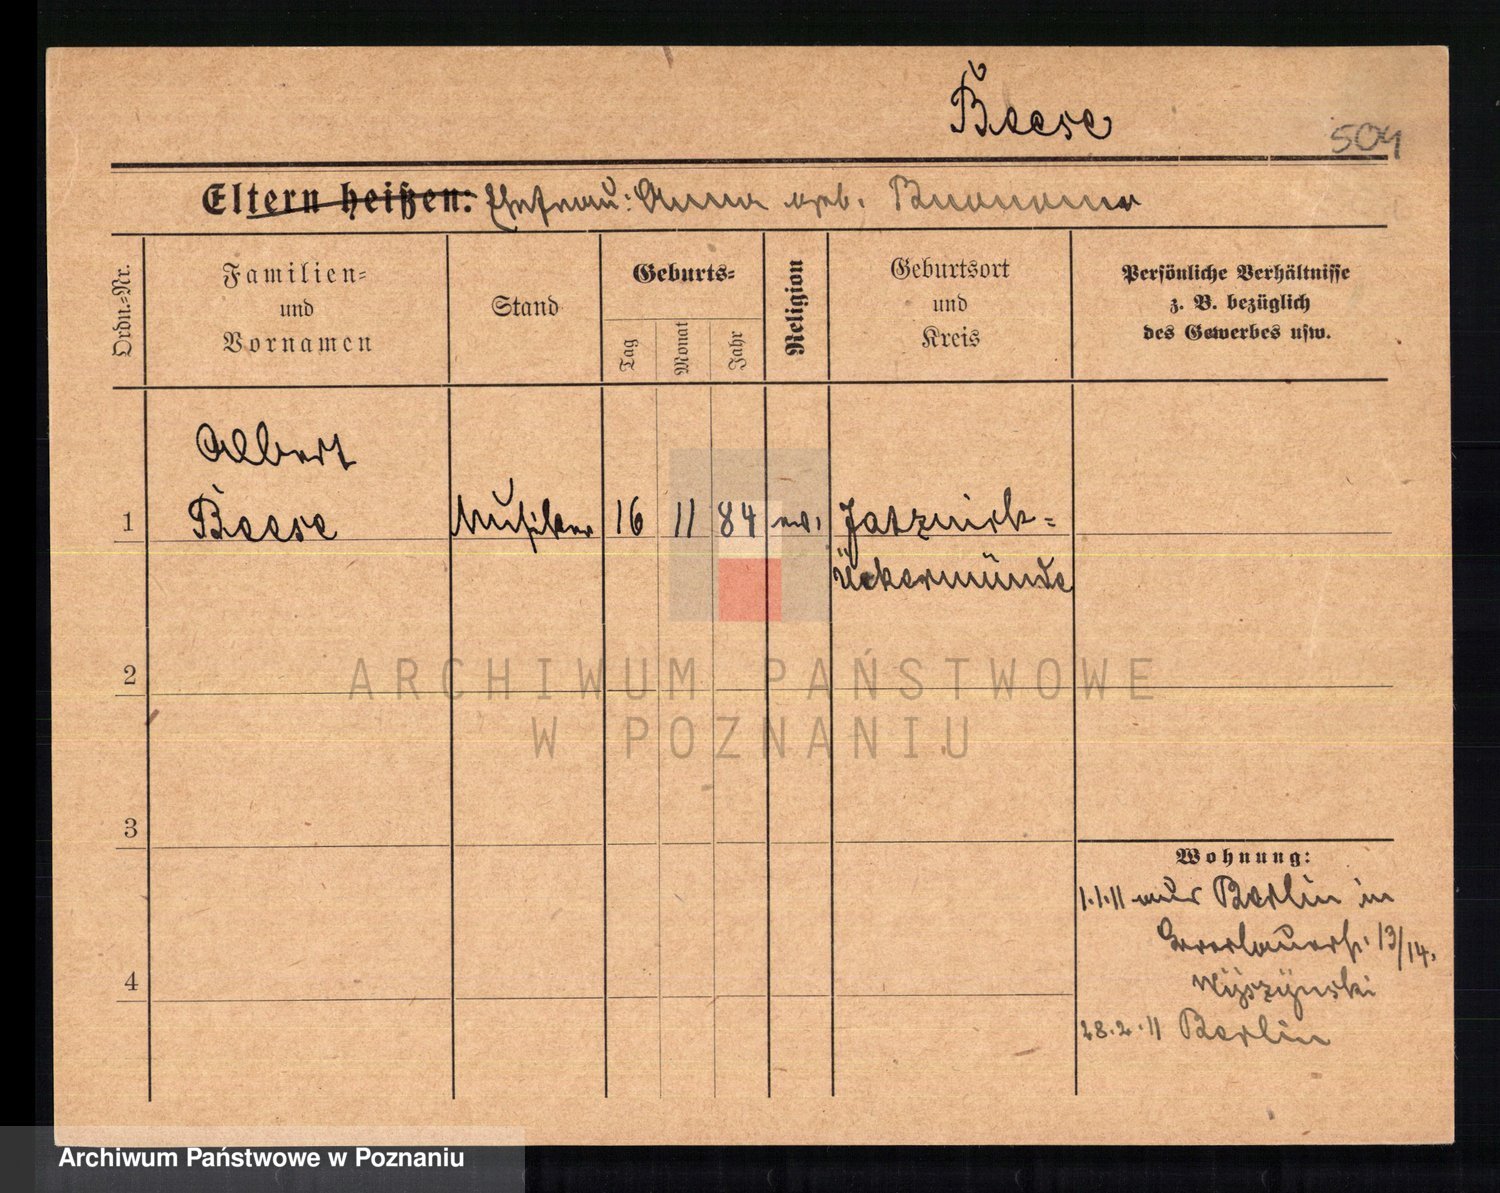 Beese
504
Eltern heißen: Ehefrau: Anna geb.
Ordn.-Nr.
Familien-
und
Vornamen
Stand
Geburts-
Tag
Monat
Jahr
Religion
Geburtsort
und
Kreis
Persönliche Verhältnisse
z. B. bezüglich
des Gewerbes usw.
Albert
1 Beese Musiker 16 11 84 ev. Jatznick-
Ückermünde
2
3
4
Wohnung:
1.1.11 aus Berlin in
13/14.
Wyszynski
28.2.11 Berlin
ARCHIWUM PAŃSTWOWE
W POZNANIU
Archiwum Państwowe w Poznaniu